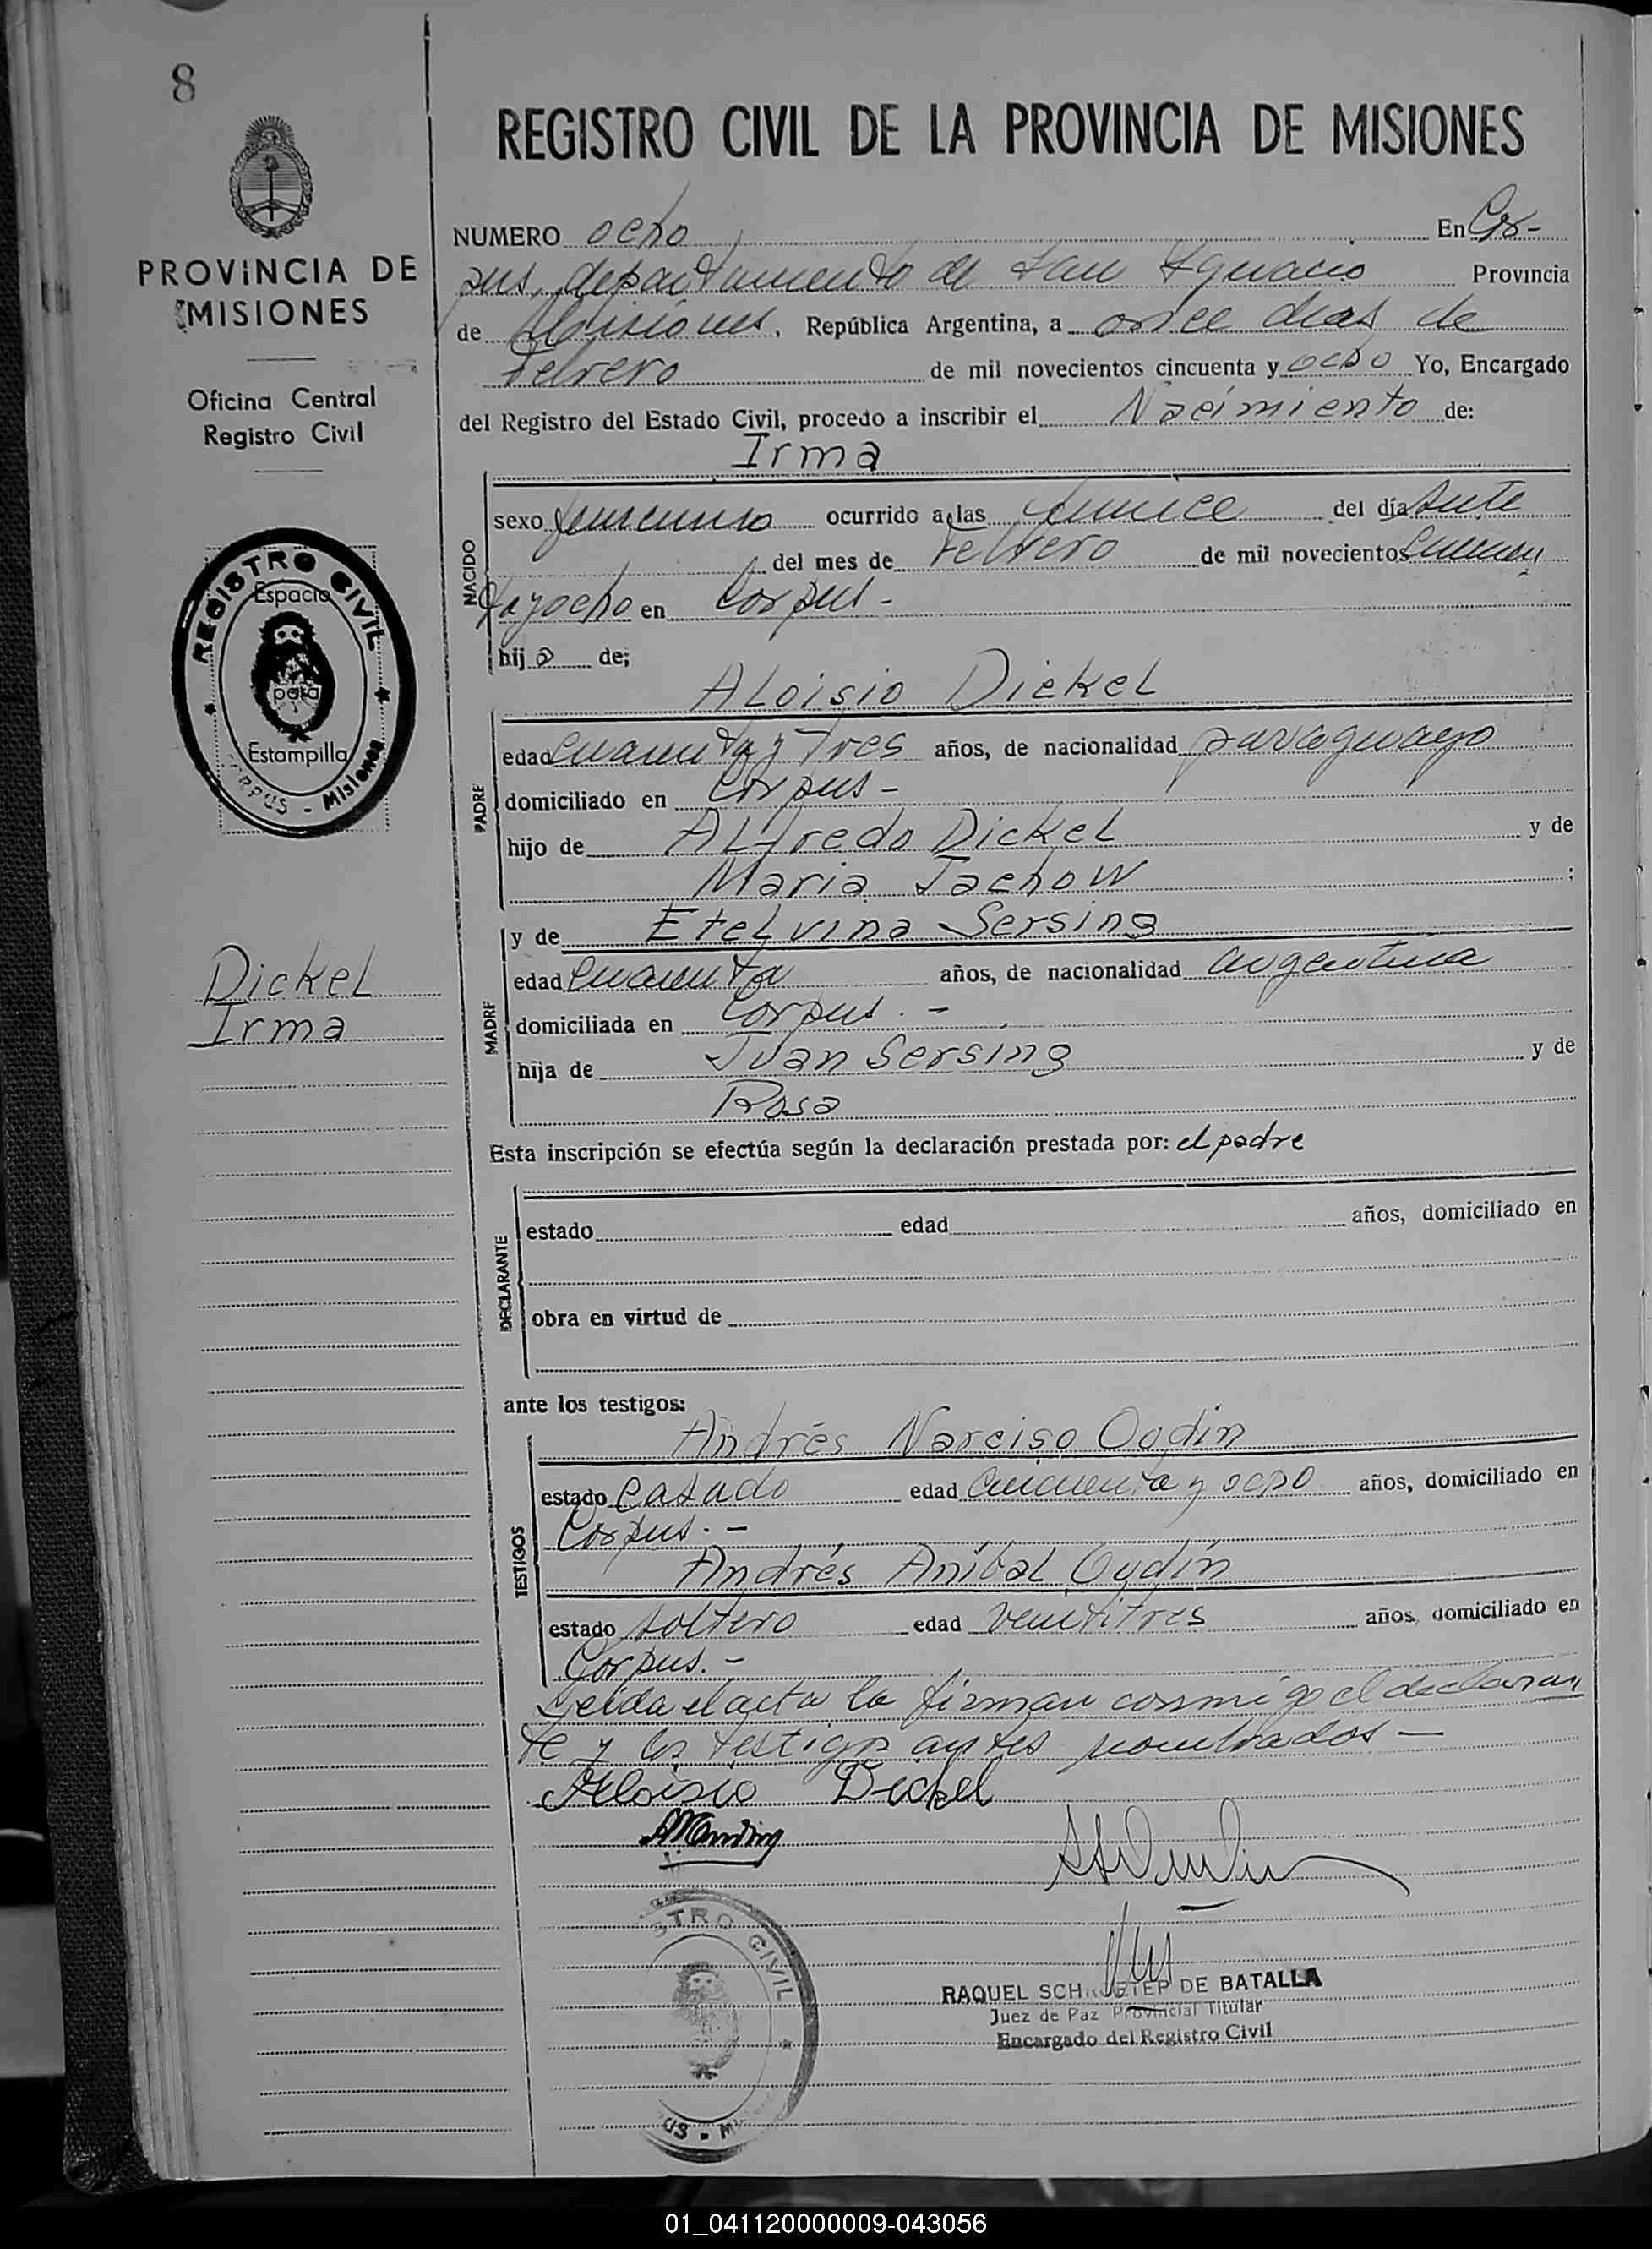 8
REGISTRO CIVIL DE LA PROVINCIA DE MISIONES
PROVINCIA DE
MISIONES
Oficina Central
Registro Civil
NUMERO ocho En Cor-
pus, departamento de San Ignacio Provincia
de Misiones, República Argentina, a once dias de
Febrero de mil novecientos cincuenta y ocho Yo, Encargado
del Registro del Estado Civil, procedo a inscribir el Nacimiento de:
Irma
NACIDO
sexo femenino ocurrido a las quince del día siete
del mes de Febrero de mil novecientos cincuen
ta y ocho en Corpus-
hija de;
REGISTRO CIVIL
Espacio
para
Estampilla
CORPUS - MISIONES
Aloisio Dickel
PADRE
edad cuarenta y Tres años, de nacionalidad paraguayo
domiciliado en Corpus-
hijo de Alfredo Dickel y de
Maria Jachow ;
y de Etelvina Sersing
MADRE
edad cuarenta años, de nacionalidad argentina
domiciliada en Corpus.-
hija de Juan Sersing y de
Rosa
Dickel
Irma
Esta inscripción se efectúa según la declaración prestada por: el padre
DECLARANTE
estado edad años, domiciliado en
obra en virtud de
ante los testigos:
Andrés Narciso
TESTIGOS
estado casado edad cincuenta y ocho años, domiciliado en
Corpus.-
Andrés Aníbal
estado soltero edad veintitres años, domiciliado en
Corpus.-
Leida el acta la firman conmigo el declaran
te y los testigos antes nombrados-
Aloisio Dickel
STRO CIVIL
US - M
RAQUEL DE BATALLA
Juez de Paz Provincial Titular
Encargado del Registro Civil
01_041120000009-043056